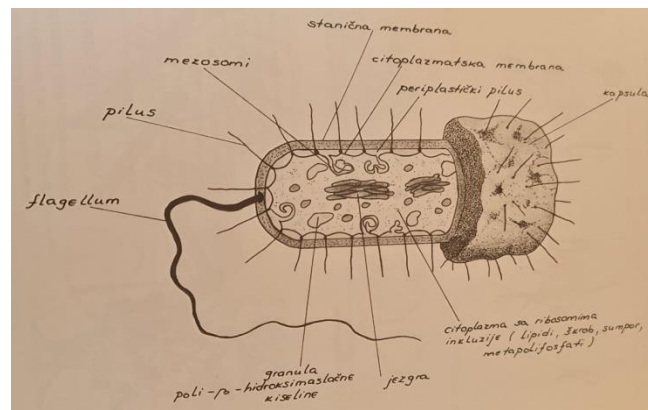 stanična membrana
mezosomi
citoplazmatska membrana
periplastički pilus
kapsula
pilus
flagellum
citoplazma sa ribosomima
inkluzije ( lipidi, škrob, sumpor,
metapolifosfati )
granula
poli-β-hidroksimaslačne
kiseline
jezgra